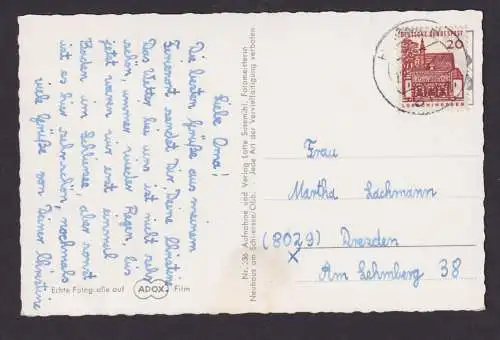 Liebe Oma!
Die besten Grüße aus meinem
Ferienort sendet Dir, Deine Christine
Das Wetter bei uns ist nicht sehr
schön, immer wieder Regen, bis
jetzt waren wir erst einmal
Baden im Schliersee, aber sonst
ist es hier sehr schön, nochmals
viele Grüße von Deiner Christine
Echte Fotografie auf ADOX Film
Nr. 336 Aufnahme und Verlag Lotte Sussmihl, Fotomeisterin
Neuhaus am Schliersee/Obb. · Jede Art der Vervielfältigung verboten
DEUTSCHE BUNDESPOST
20
LORSCH/HESSEN
Frau
Martha Lachmann
(8029) Dresden
x
Am Lehmberg 38